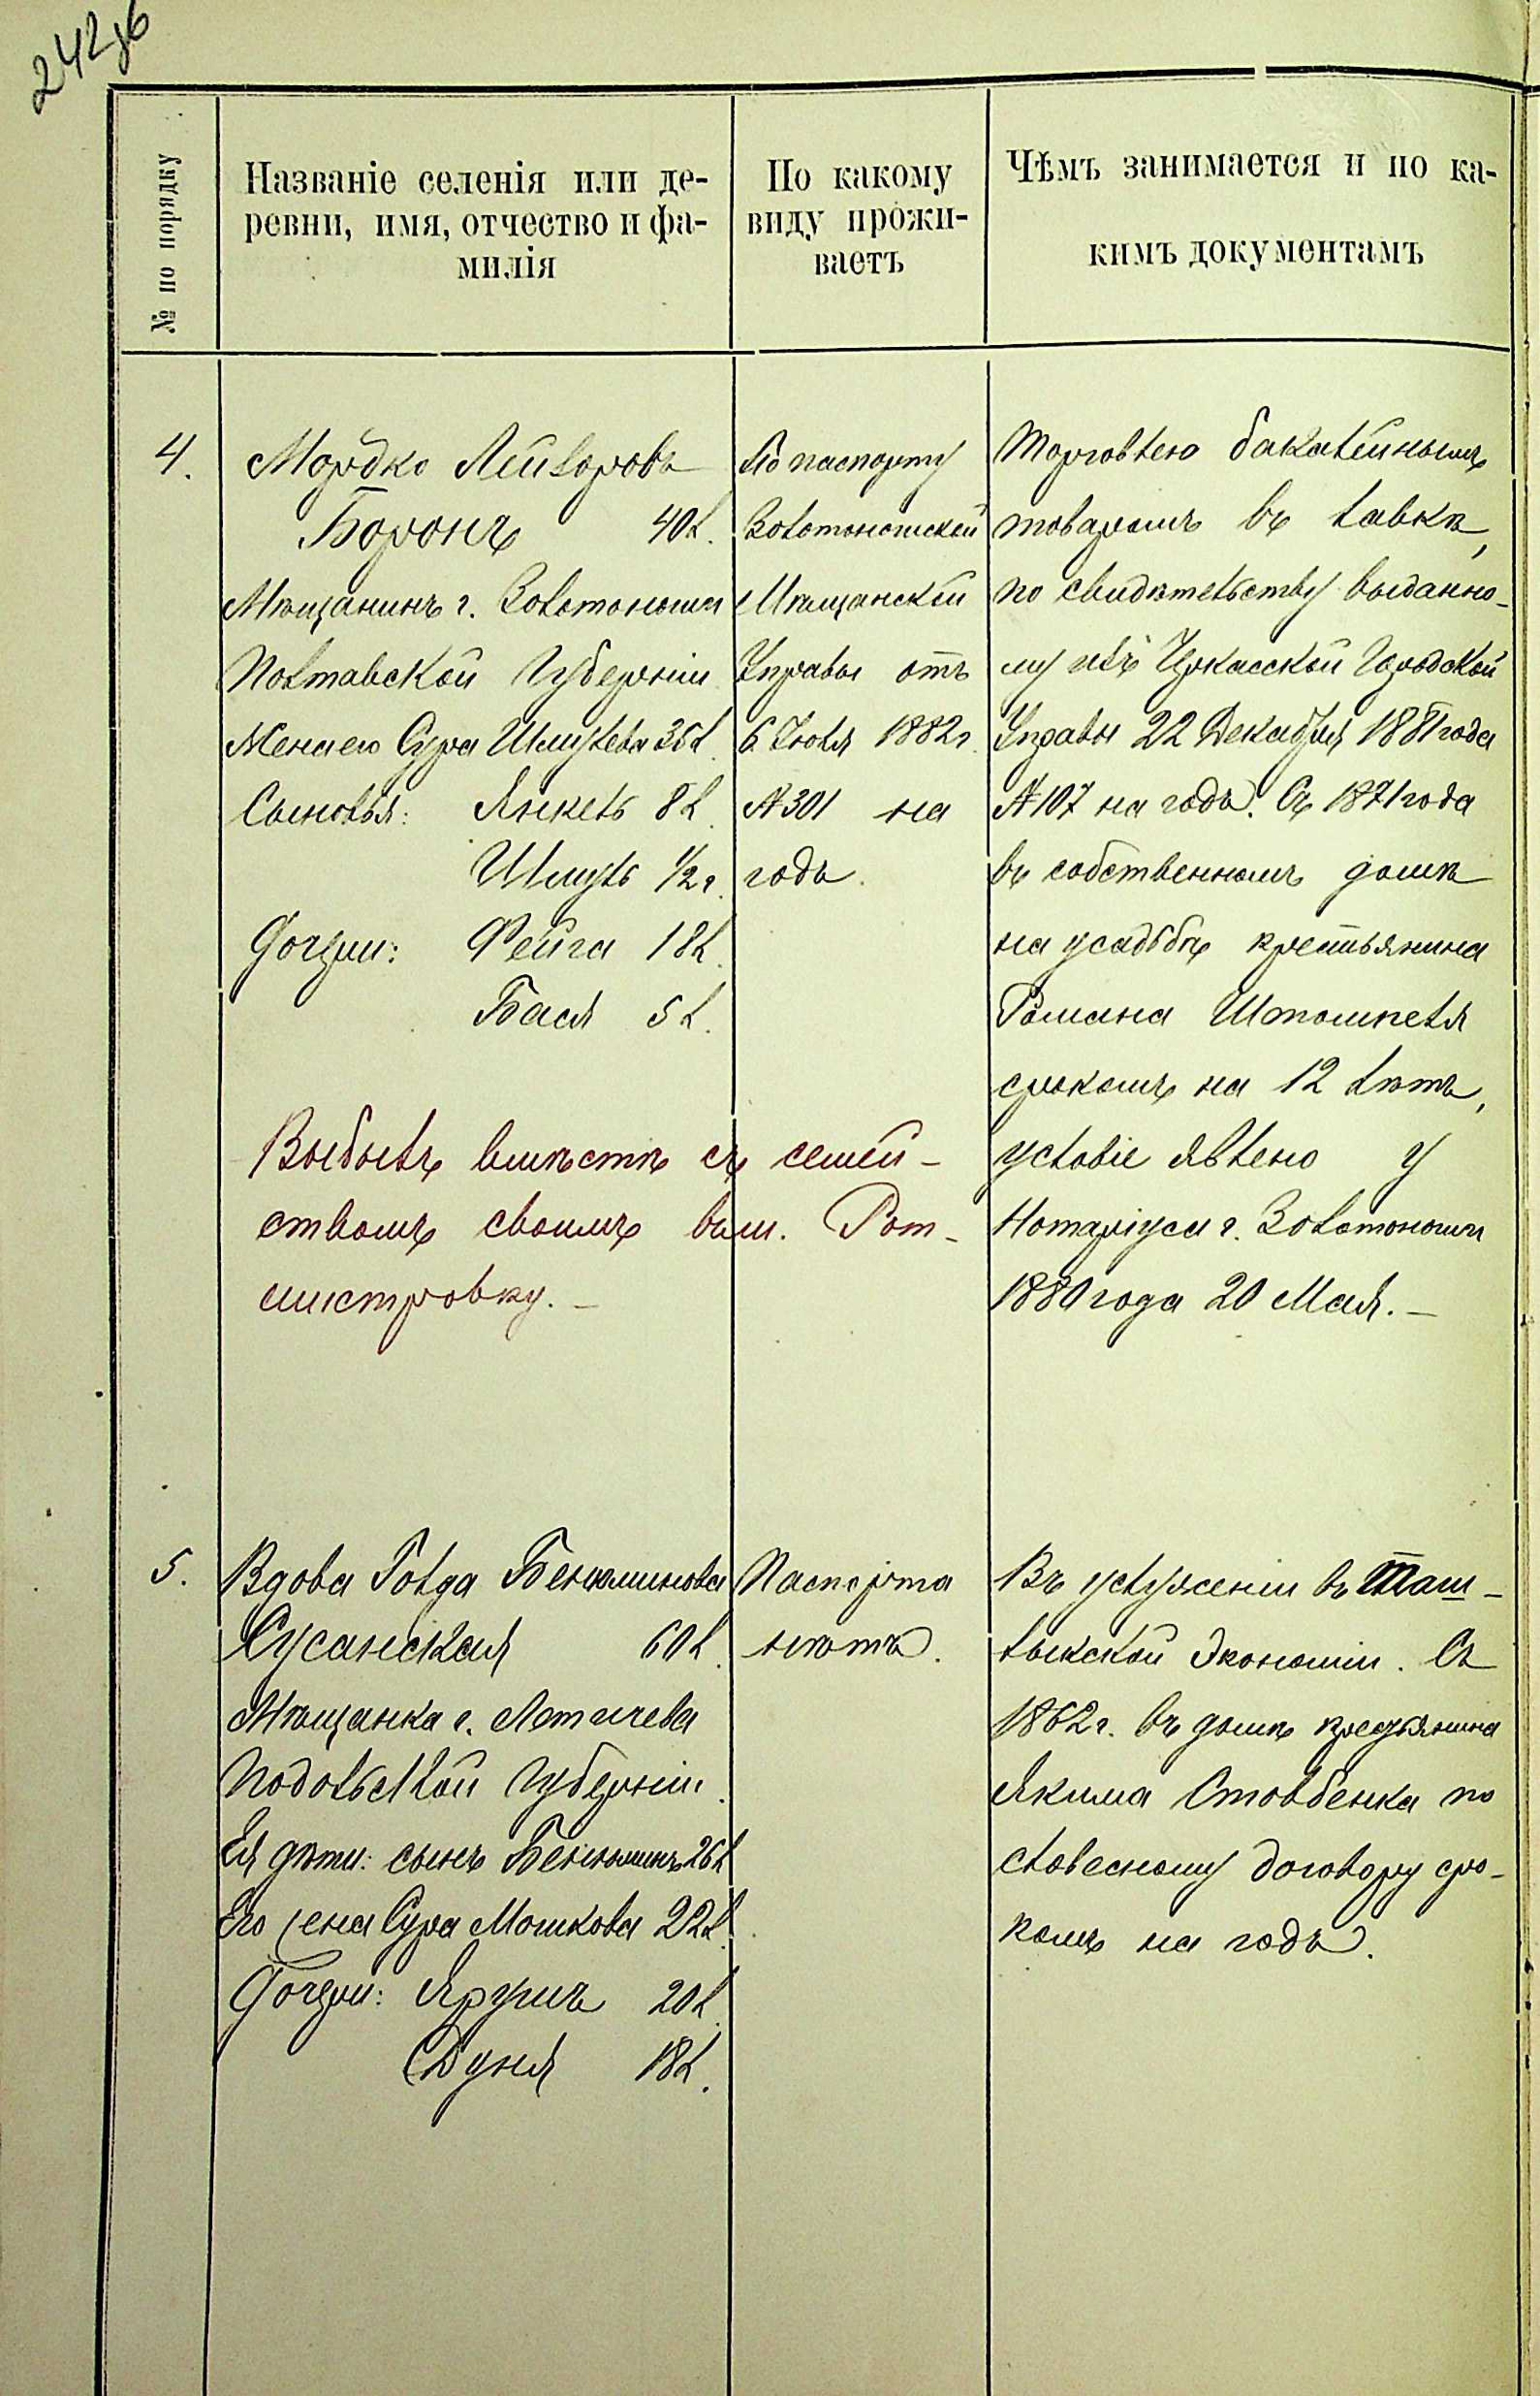 242об
№ по порядку
Названіе селенія или де-
ревни, имя, отчество и фа-
милія
По какому
виду прожи-
ваетъ
Чѣмъ занимается и по ка-
кимъ документамъ
4.
Мордко Лейзоровъ
Боронъ 40 л.
Мѣщанинъ г. Золотоноши
Полтавской Губерніи
Жена его Сура Шмулева 35 л.
Сыновья: Янкель 8 л.
Шмуль 1/2 г.
Дочери: Фейга 18 л.
Бася 5 л.
По паспорту
Золотоношской
Мѣщанской
Управы отъ
6 Іюля 1882 г.
№ 301 на
годъ.
Торговлею бакалейнымъ
товаромъ въ лавкѣ,
по свидѣтельству выданно-
му изъ Черкасской Городской
Управы 22 Декабря 1881 года
№ 107 на годъ. Съ 1871 года
въ собственномъ домѣ
на усадьбѣ крестьянина
Романа Штомпеля
срокомъ на 12 лѣтъ,
условіе явлено у
Нотаріуса г. Золотоноши
1880 года 20 Мая. —
Выбылъ вмѣстѣ съ семей-
ствомъ своимъ въ м. Рот-
мистровку. —
5.
Вдова Голда Бенюминова
Сусанская 60 л.
Мѣщанка г. Летичева
Подольской Губерніи.
Ея дѣти: сынъ Бенюминъ 26 л
Его жена Сура Мошкова 22 л.
Дочери: Ярума 20 л.
Дуня 18 л.
Паспорта
нѣтъ.
Въ услуженіи въ Таш-
лыкской Экономіи. Съ
1862 г. въ домѣ крестьянина
Якима Стовбенка по
словесному договору сро-
комъ на годъ.